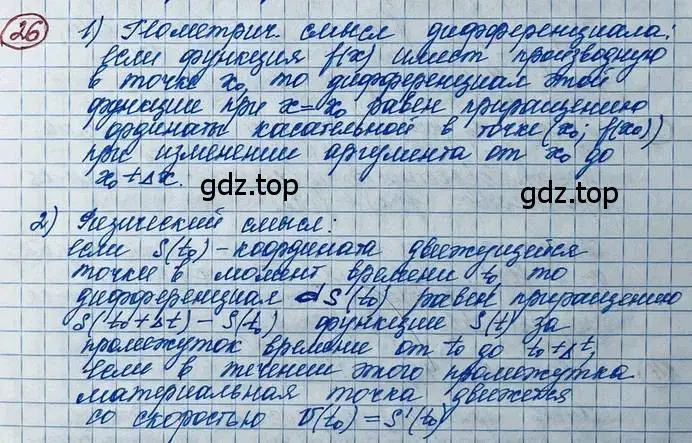 26
1) Геометрич смысл дифференциала:
если функция f(x) имеет производную
в точке x₀, то дифференциал этой
функции при x=x₀ равен приращению
ординаты касательной в точке (x₀; f(x₀))
при изменении аргумента от x₀ до
x₀+Δx.
gdz.top
gdz.top
2) Физический смысл:
если S(t₀) - координата движущейся
точки в момент времени t₀, то
дифференциал dS'(t₀) равен приращению
S(t₀+Δt) - S(t₀) функции S(t) за
промежуток времени от t₀ до t₀+Δt,
если в течении этого промежутка
материальная точка движется
со скоростью V(t₀) = S'(t₀)
gdz.top
gdz.top